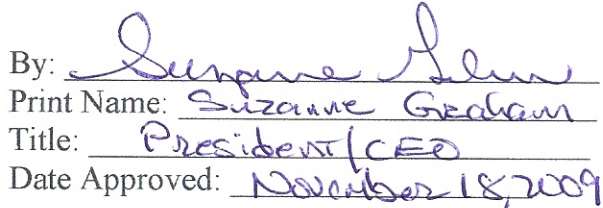 By: Suzanne Graham
Print Name: Suzanne Graham
Title: President/CEO
Date Approved: November 18, 2009